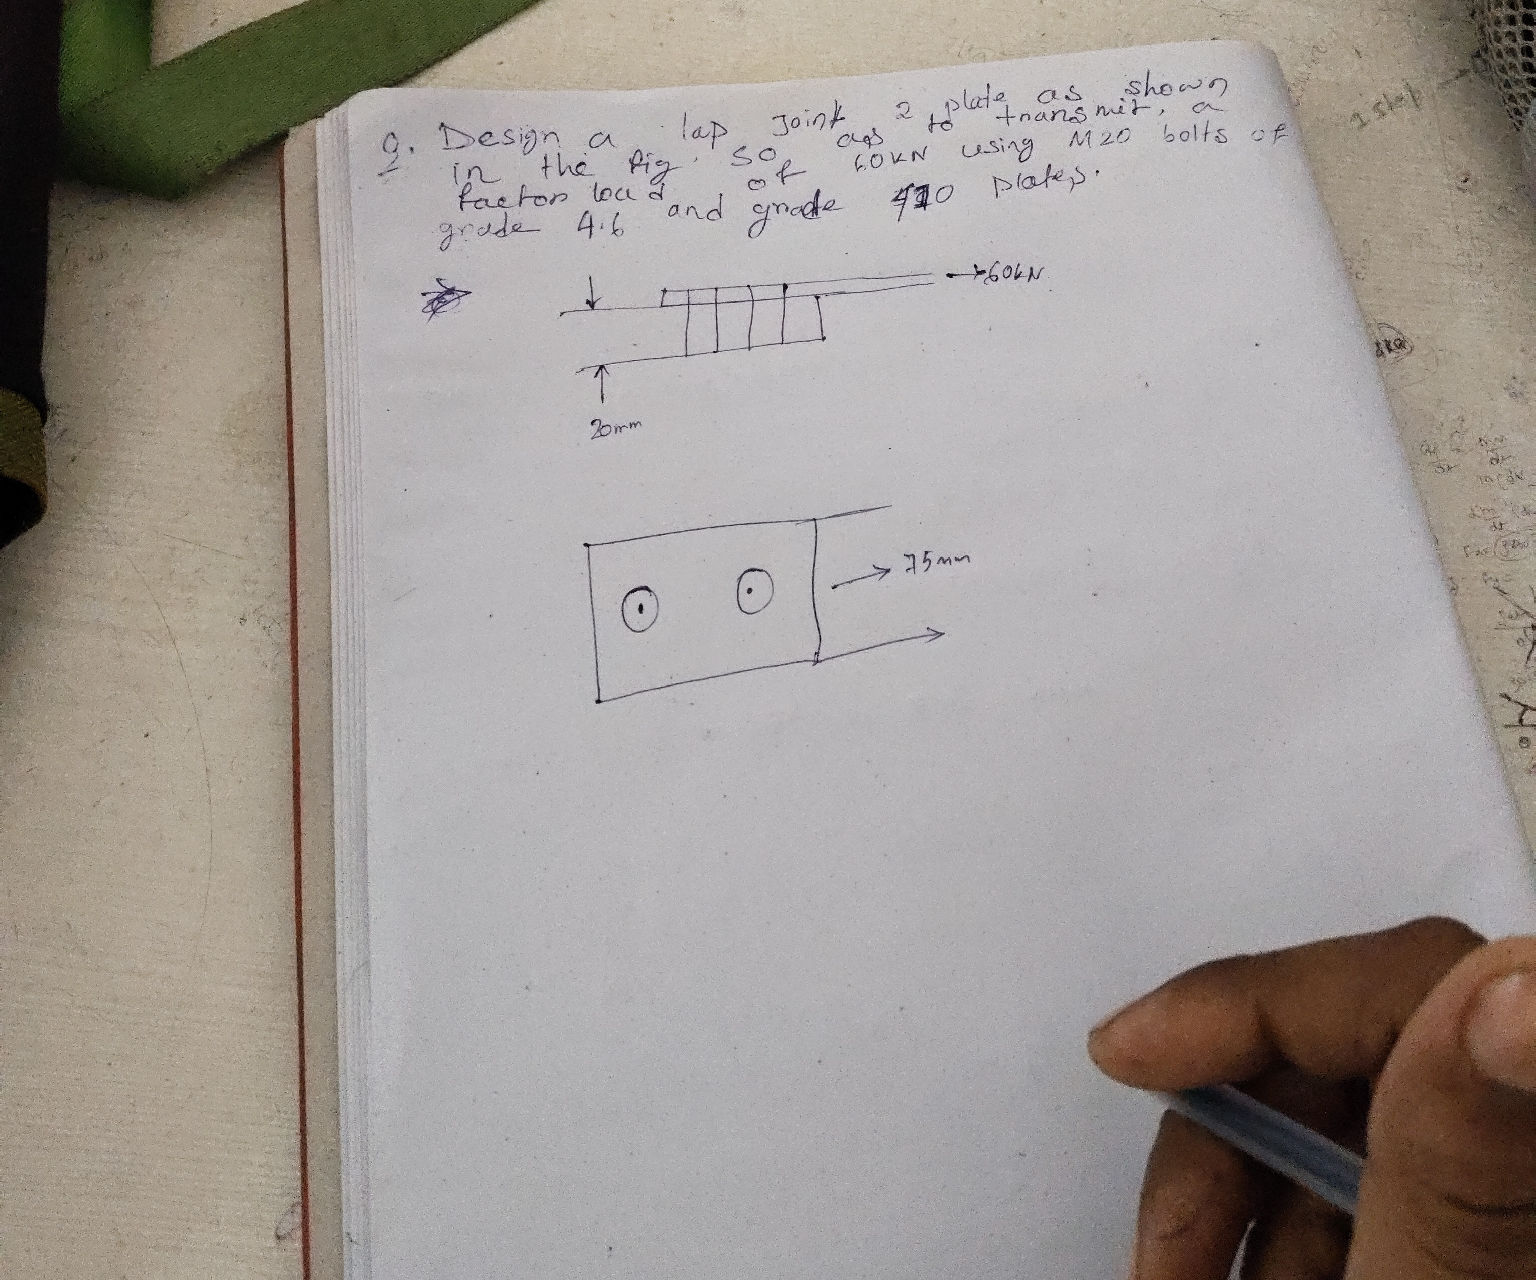 Q. Design a lap Joint 2 plate as shown
in the fig. so as to transmit, a
factor load of 60KN using M20 bolts of
grade 4.6 and grade 410 plates.
→60kN
20mm
→ 75mm